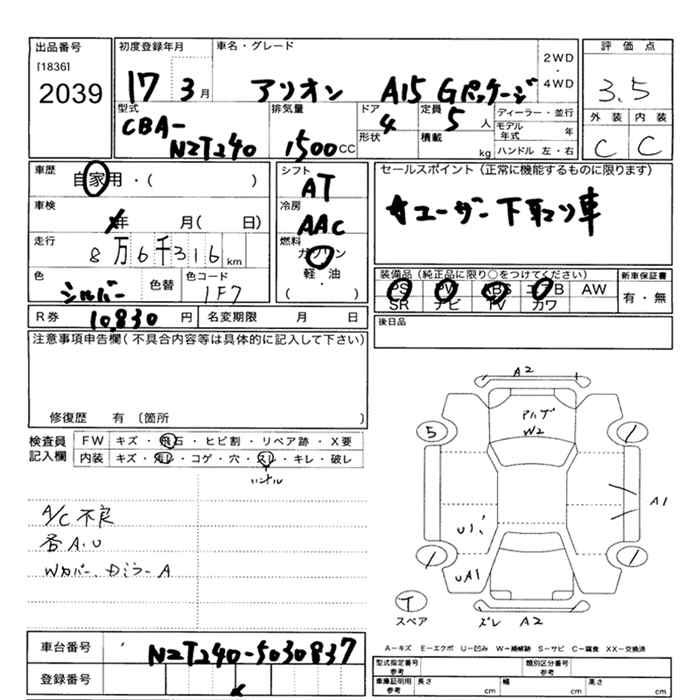 出品番号 初度登録年月 車名・グレード 2WD・4WD 評価点
[1836]
2039 17 3月 アリオン A15 Gパッケージ 3.5
型式 排気量 ドア 定員 ディーラー・並行 外装 内装
CBA-NZT240 1500CC 4 5人 モデル年式 年 C C
形状 積載 kg ハンドル 左・右
車歴 自家用・( ) シフト AT セールスポイント(正常に機能するものに限ります)
車検 年 月( 日) 冷房 AAC ユーザー下取り車
走行 8万6千316km 燃料 ガソリン 軽・油 ( ・ )
色 シルバー 色替 色コード 1F7 装備品(純正品に限り○をつけてください) 新車保証書
PS PW ABS エアB AW 有・無
SR ナビ TV カワ
R券 10,830円 名変期限 月 日 後日品
注意事項申告欄(不具合内容等は具体的に記入して下さい)
修復歴 有〔箇所 〕
検査員記入欄 FW キズ・飛石・ヒビ割・リペア跡・X要
内装 キズ・・コゲ・穴・スレ・キレ・破レ
ハンドル
A/C不良
各A.U
Wカバー、Dミラー A
A2
W2
5
1
A1
U1
1
1
UA1
T
スペア
ズレ A2
A−キズ E−エクボ U−凹み W−補修跡 S−サビ C−腐食 XX−交換済
車台番号 NZT240-5030837
登録番号
型式指定番号 参考 類別区分番号 参考
車庫証明用 参考 長さ cm 幅 cm 高さ cm